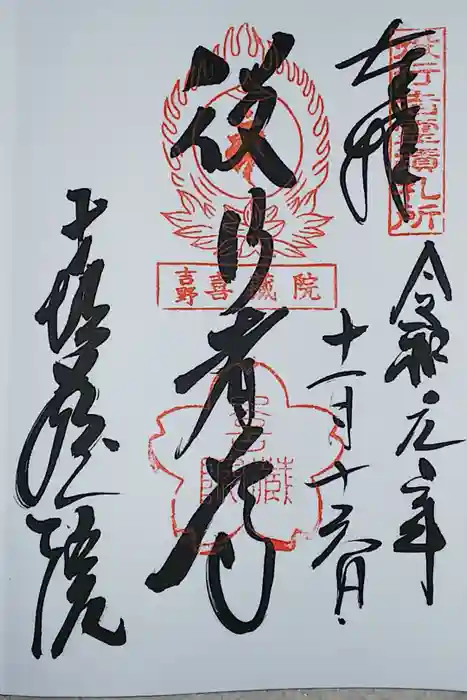 役行者霊蹟札所
奉拝
令和元年
十一月十六日
役行者
吉野喜蔵院
喜蔵院